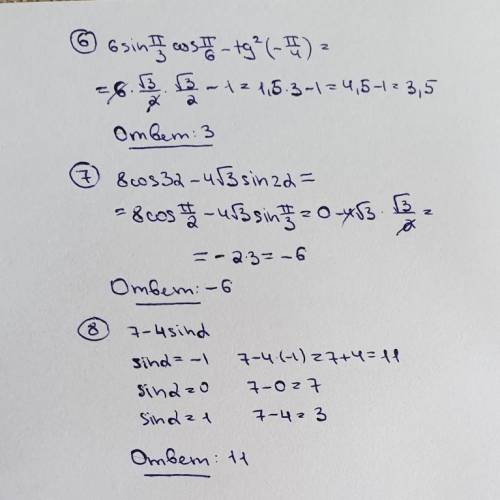 6 6sin π/3 cos π/6 - tg²(-π/4) =
= 6 · √3/2 · √3/2 - 1 = 1,5 · 3 - 1 = 4,5 - 1 = 3,5
Ответ: 3
7 8cos3α - 4√3 sin2α =
= 8cos π/2 - 4√3 sin π/3 = 0 - 4√3 · √3/2 =
= - 2·3 = -6
Ответ: -6
8 7-4sinα
sinα = -1 7-4·(-1) = 7+4 = 11
sinα = 0 7-0 = 7
sinα = 1 7-4 = 3
Ответ: 11